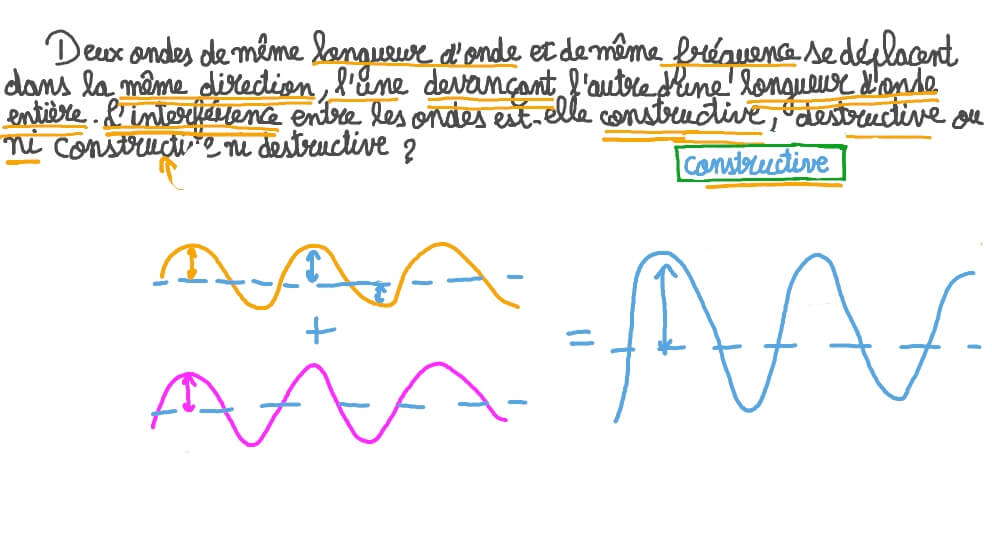 Deux ondes de même longueur d'onde et de même fréquence se déplacent
dans la même direction, l'une devançant l'autre d'une longueur d'onde
entière. L'interférence entre les ondes est-elle constructive, destructive ou
ni constructive ni destructive ?
constructive
+
=